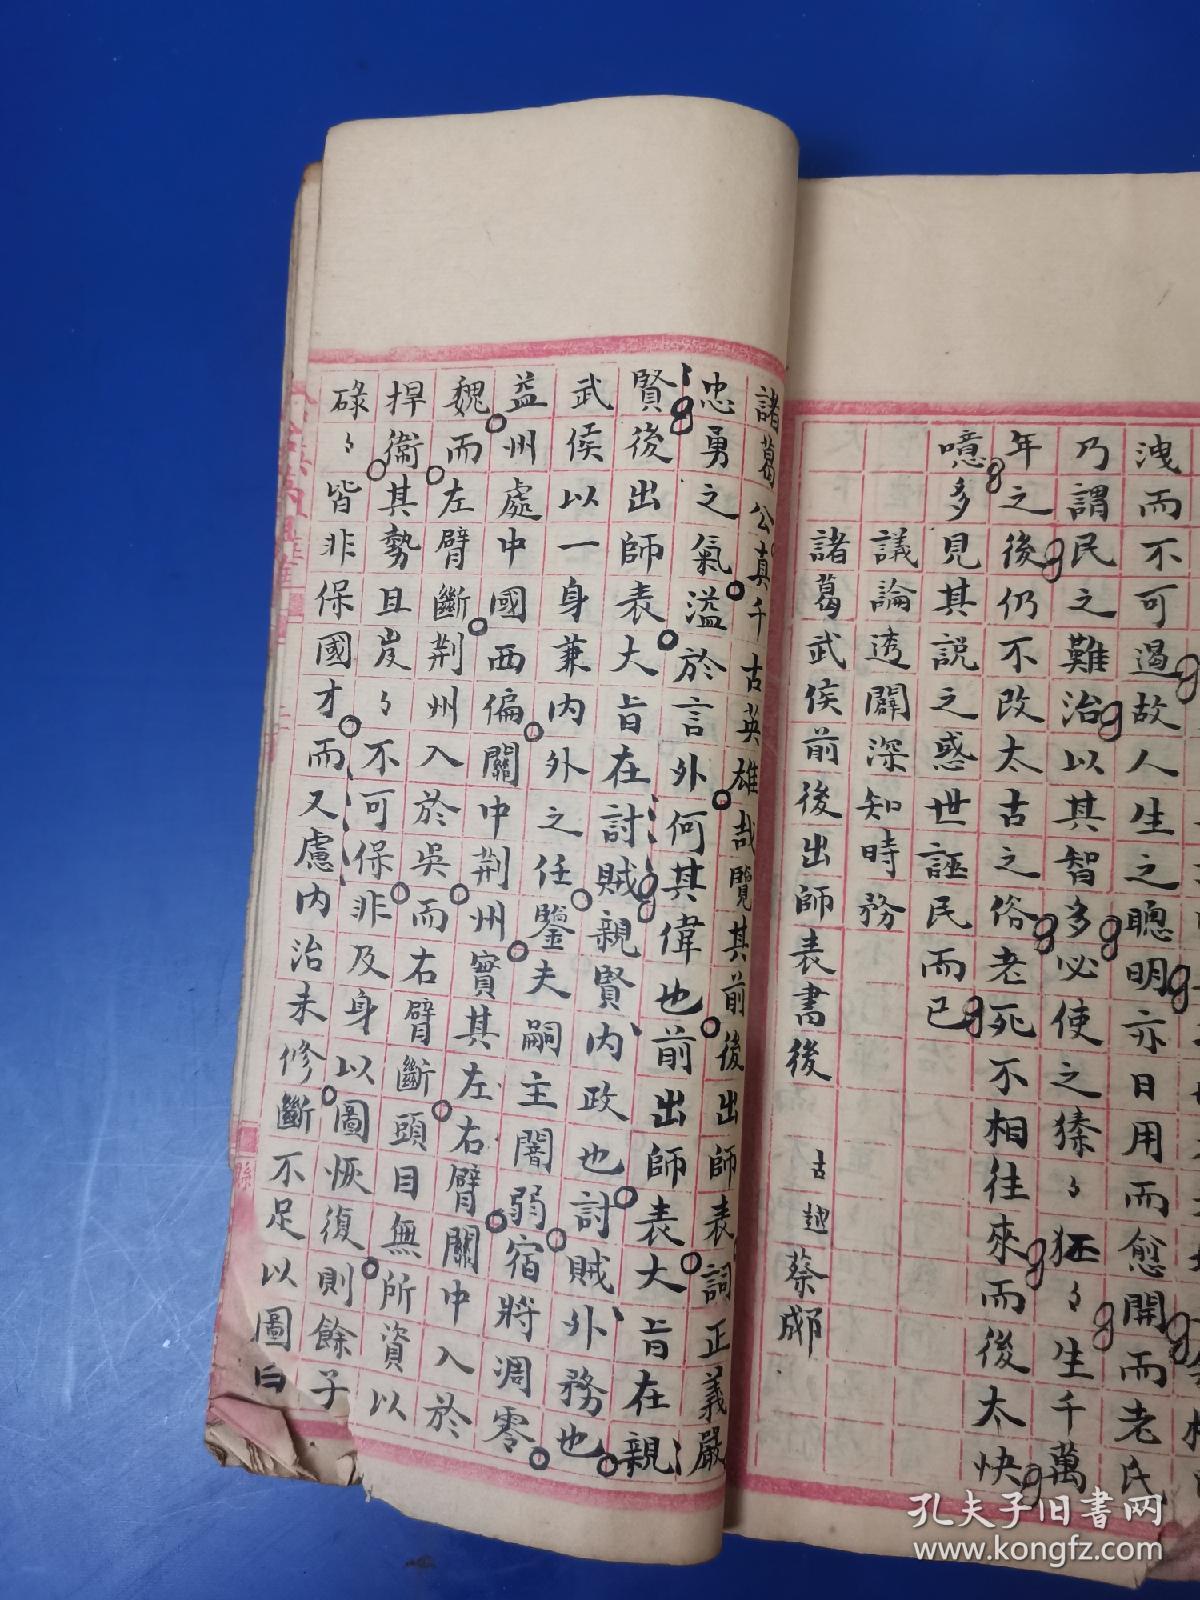 洩而不可遏故人生之聰明亦日用而愈開而老氏
乃謂民之難治以其智多必使之獉〻狉〻生千萬
年之後仍不改太古之俗老死不相往來而後太快
噫多見其說之惑世誣民而已
議論透闢深知時務
諸葛武侯前後出師表書後 古越蔡郕
諸葛公真千古英雄哉覽其前後出師表詞正義嚴
忠勇之氣溢於言外何其偉也前出師表大旨在親
賢後出師表大旨在討賊親賢內政也討賊外務也
武侯以一身兼內外之任鑒夫嗣主闇弱宿將凋零
益州處中國西偏關中荆州實其左右臂關中入於
魏而左臂斷荆州入於吳而右臂斷頭目無所資以
捍衞其勢且岌〻不可保非及身以圖恢復則餘子
碌〻皆非保國才而又慮內治未修斷不足以圖白
孔夫子旧书网
www.kongfz.com